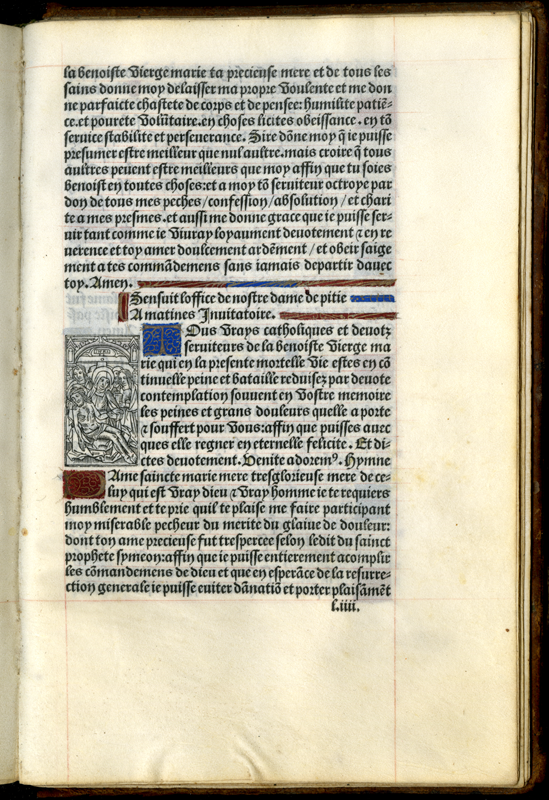 la benoiste vierge marie ta precieuse mere et de tous les
sains donne moy delaisser ma propre voulente et me don
ne parfaicte chastete de corps et de pensee: humilite patiē-
ce. et pourete volūtaire. en choses licites obeissance. en tō
service stabilite et perseverance. Sire dōne moy q̄ ie puisse
presumer estre meilleur que nul aultre. mais croire q̄ tous
aultres peuent estre meilleurs que moy affin que tu soies
benoist en toutes choses: et a moy tō seruiteur octroye par
don de tous mes peches / confession / absolution / et chari
te a mes presmes. et aussi me donne grace que ie puisse ser-
uir tant comme ie viuray loyaument deuotement ⁊ en re
uerence et toy amer doulcement ardēment / et obeir saige
ment a tes commādemens sans iamais departir dauec
toy. Amen.
Sensuit loffice de nostre dame de pitie
A matines Inuitatoire.
TOus vrays catholiques et deuotz
seruiteurs de la benoiste vierge ma
rie qui en la presente mortelle vie estes en cō
tinuelle peine et bataille reduisez par deuote
contemplation souuent en vostre memoire
les peines et grans douleurs quelle a porte
⁊ souffert pour vous: affin que puisses auec
ques elle regner en eternelle felicite. Et di-
ctes deuotement. Venite adoremꝰ. Hymne
DAme saincte marie mere tresglorieuse mere de ce-
luy qui est vray dieu ⁊ vray homme ie te requiers
humblement et te prie quil te plaise me faire participant
moy miserable pecheur du merite du glaiue de douleur:
dont ton ame precieuse fut trespercee selon ledit du sainct
prophete symeon: affin que ie puisse entierement acomplir
les cōmandemens de dieu et que en esperāce de la resurre-
ction generale ie puisse euiter dānatiō et porter plaisāmēt
l.iiii.